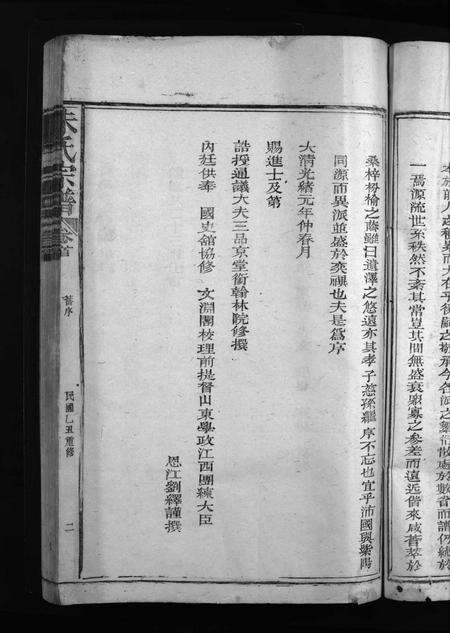 一喬源流世系秩然不紊其當豈其間無盛衰眾寡之參差而遠近偕來咸薈萃於
桑梓枌榆之蔭雖曰遺澤之悠遠亦其孝子慈孫繼序不忘也宜乎沛國與紫陽
同源而異派並盛於奕禩也夫是爲序
大清光緒元年仲春月
賜進士及第
誥授通議大夫三品京堂銜翰林院修撰
內廷供奉 國史舘協修 文淵閣校理前提督山東學政江西團練大臣
恩江劉繹謹撰
朱氏宗譜 卷首 舊序 民國乙丑重修 二